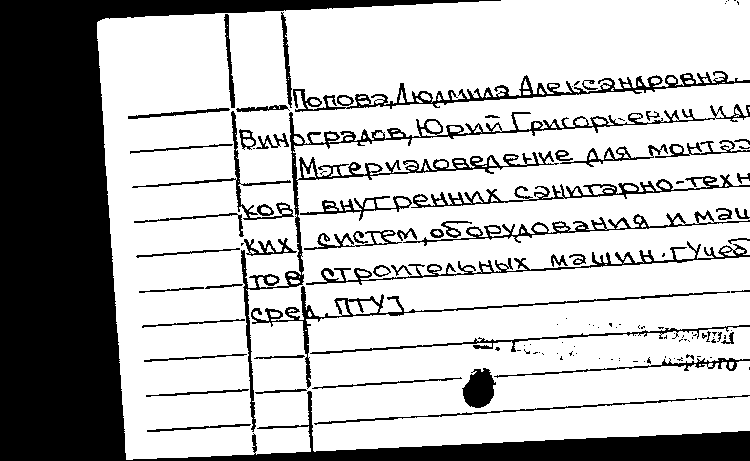 Попова, Людмила Александровна.
Виноградов, Юрий Григорьевич и др
Материаловедение для монтаж
ков внутренних санитарно-техн
ких систем, оборудования и маш
тов строительных машин. [Учеб
сред. ПТУ].
изданий
первого